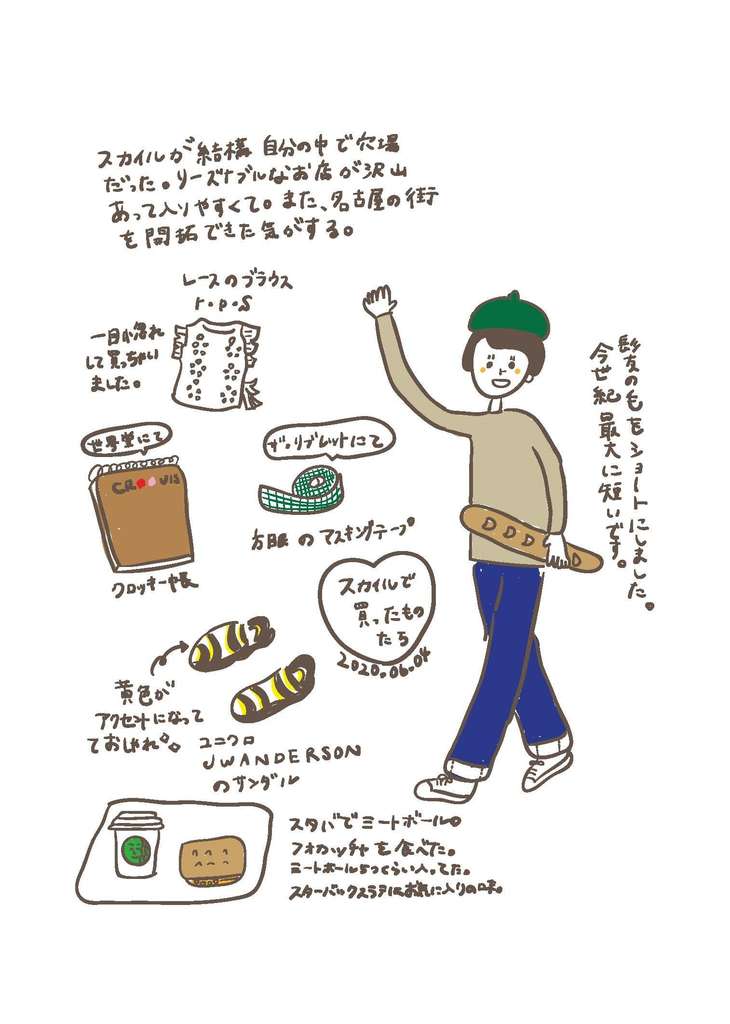 スカイルが結構 自分の中で穴場
だった。リーズナブルなお店が沢山
あって入りやすくて。また、名古屋の街
を開拓できた気がする。
レースのブラウス
r・p・s
一目惚れ
して買っちゃい
ました。
髪の毛をショートにしました。
今世紀 最大に短いです。
世界堂にて
CROQUIS
クロッキー帳
ザ・リブレットにて
方眼 の マスキングテープ
スカイルで
買ったもの
たち
2020.06.04
黄色が
アクセントになって
ておしゃれ。
ユニクロ
JWANDERSON
のサンダル
スタバでミートボール
フォカッチャを食べた。
ミートボール5つくらい入ってた。
スターバックスラテはお気に入りの味。